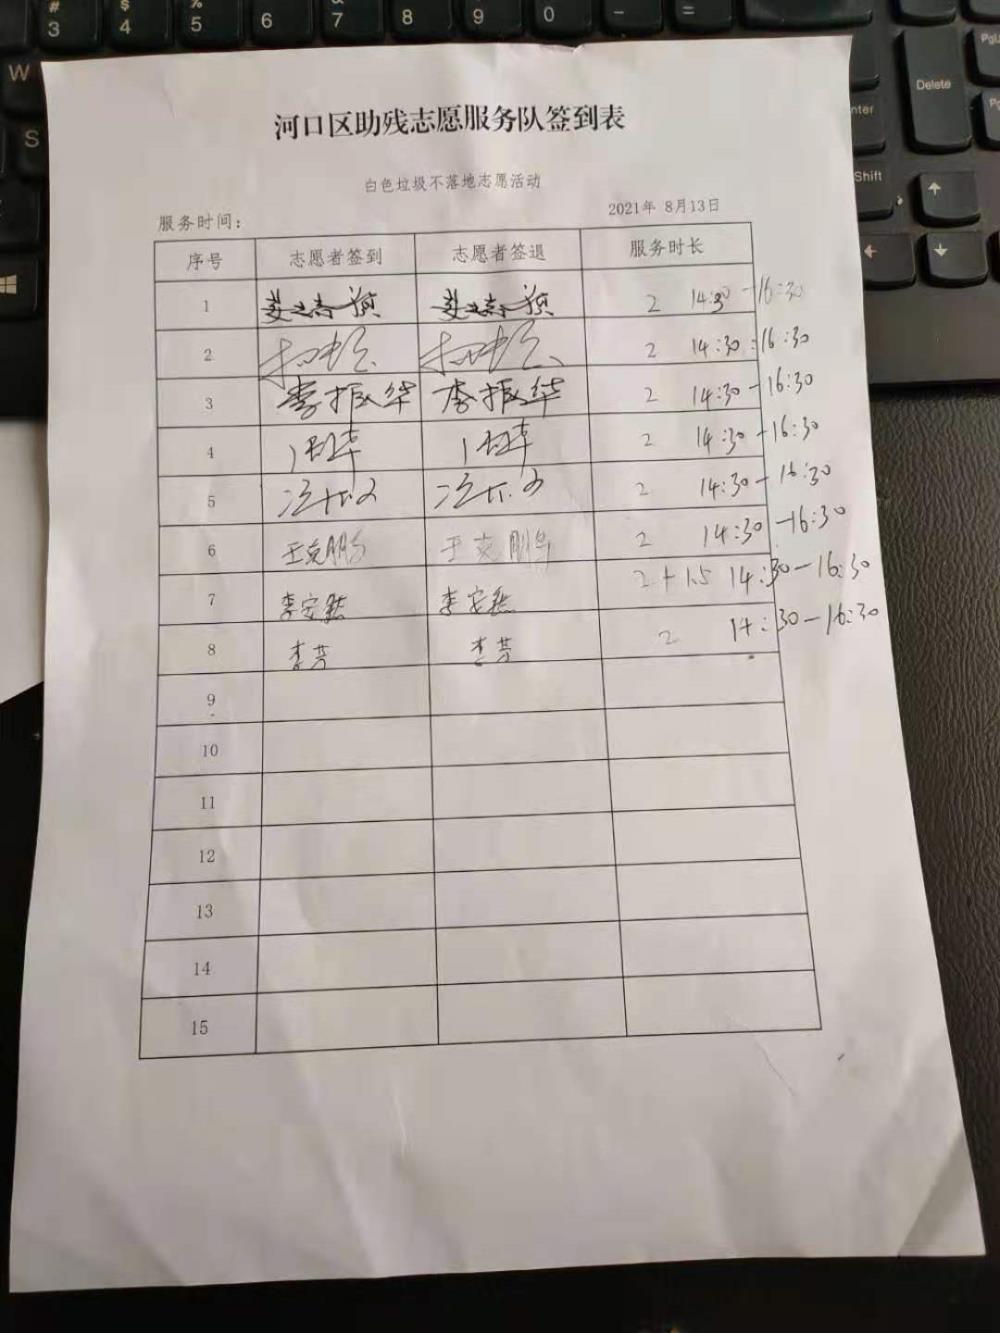 河口区助残志愿服务队签到表
白色垃圾不落地志愿活动
服务时间： 2021年 8月13日
序号 志愿者签到 志愿者签退 服务时长
1 2 14:30-16:30
2 2 14:30-16:30
3 李振华 李振华 2 14:30-16:30
4 2 14:30-16:30
5 2 14:30-16:30
6 王克鹏 王克鹏 2 14:30-16:30
7 李安然 李安然 2+1.5 14:30-16:30
8 李芳 李芳 2 14:30-16:30
9
10
11
12
13
14
15
# 3
$ 4
% 5
6
7
8
9
0
-
=
W
S
Delete
Shift